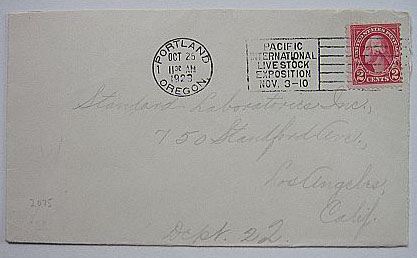 PORTLAND
OCT 25
11 AM
OREGON
PACIFIC
INTERNATIONAL
LIVE STOCK
EXPOSITION
NOV. 3-10
UNITED STATES POSTAGE
2 CENTS 2
Laboratories Inc,
750 Stanford Ave,
Los Angeles,
Calif.
Dept. 22.
2075